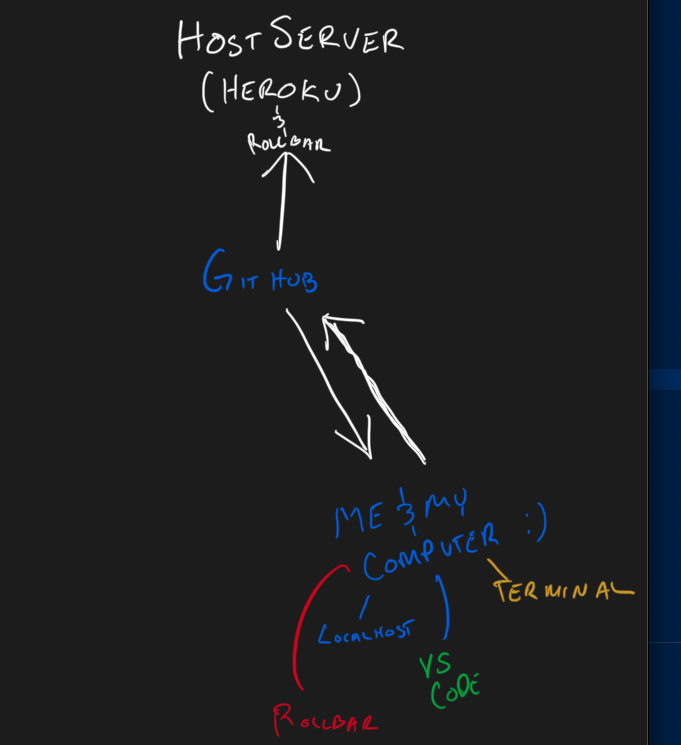 HOST SERVER
(HEROKU)
&
ROLLBAR
GITHUB
ME & MY
COMPUTER :)
TERMINAL
LOCALHOST
VS
CODE
ROLLBAR